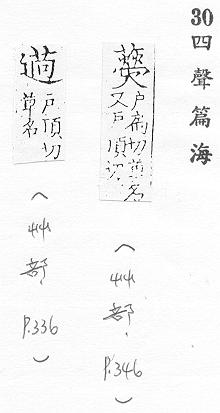 30四聲篇海
戶扃切草名
又戶頂切
(艸部,P.346)
戶頂切
草名
(艸部,P.336)